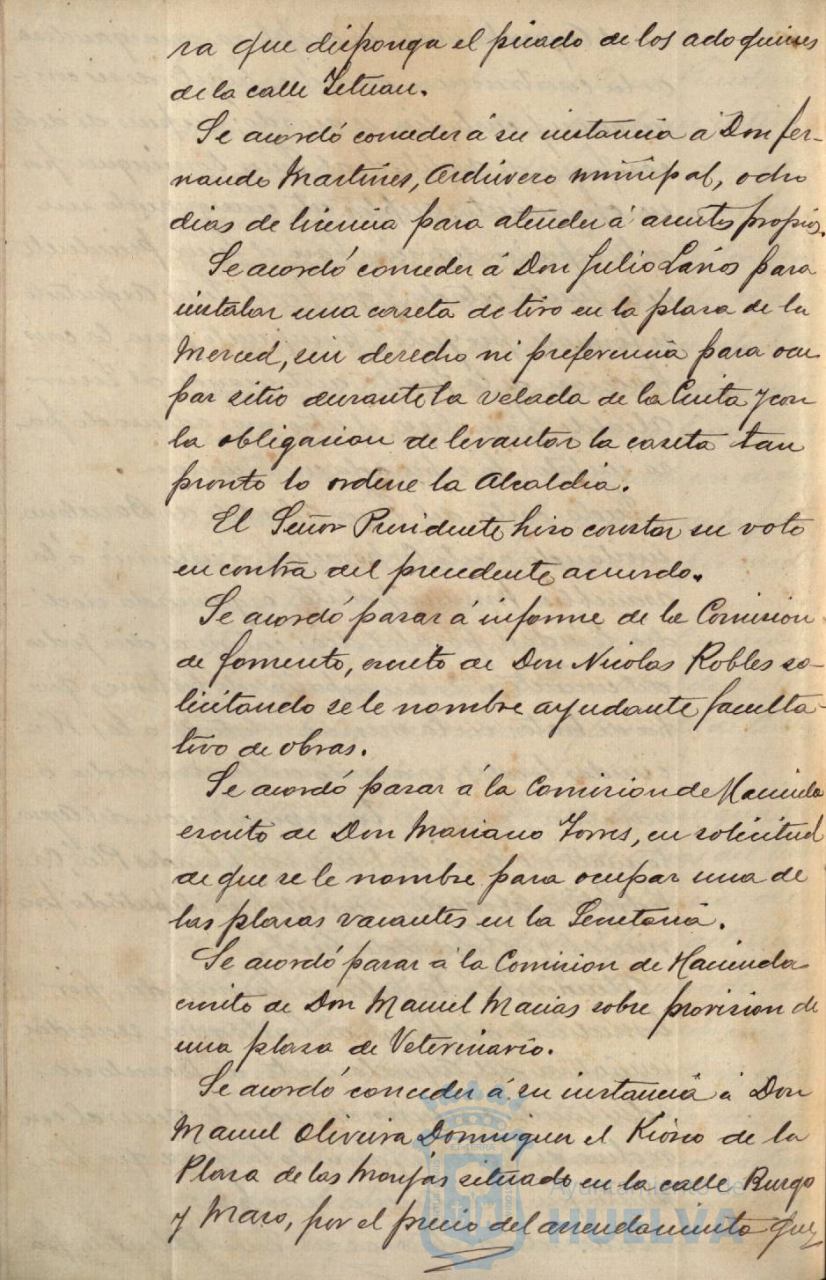 ra que disponga el picado de los adoquines
de la calle Tetuan.
Se acordó conceder á su instancia á Don Fer-
nando Martines, Archivero municipal, ocho
dias de licencia para atender á asuntos propios.
Se acordó conceder á Don Julio Larios para
instalar una caseta de tiro en la plasa de la
Merced, sin derecho ni preferencia para ocu
par sitio durante la velada de la Cinta y con
la obligasion de levantar la caseta tan
pronto lo ordene la Alcaldia.
El Señor Presidente hiso constar su voto
en contra del precedente acuerdo.
Se acordó pasar á informe de la Comision
de fomento, escrito de Don Nicolas Robles so-
licitando se le nombre ayudante faculta-
tivo de obras.
Se acordó pasar á la Comision de Hacienda
escrito de Don Mariano Torres, en solicitud
de que se le nombre para ocupar una de
las plasas vacantes en la Secretaria.
Se acordó pasar á la Comision de Hacienda
escrito de Don Manuel Macias sobre provision de
una plasa de Veterinario.
Se acordó conceder á su instancia á Don
Manuel Oliveira Dominguez el Kiosco de la
Plasa de las Monjas situado en la calle Burgo
y Maso, por el precio del arrendamiento que
Ayuntamiento de
HUELVA